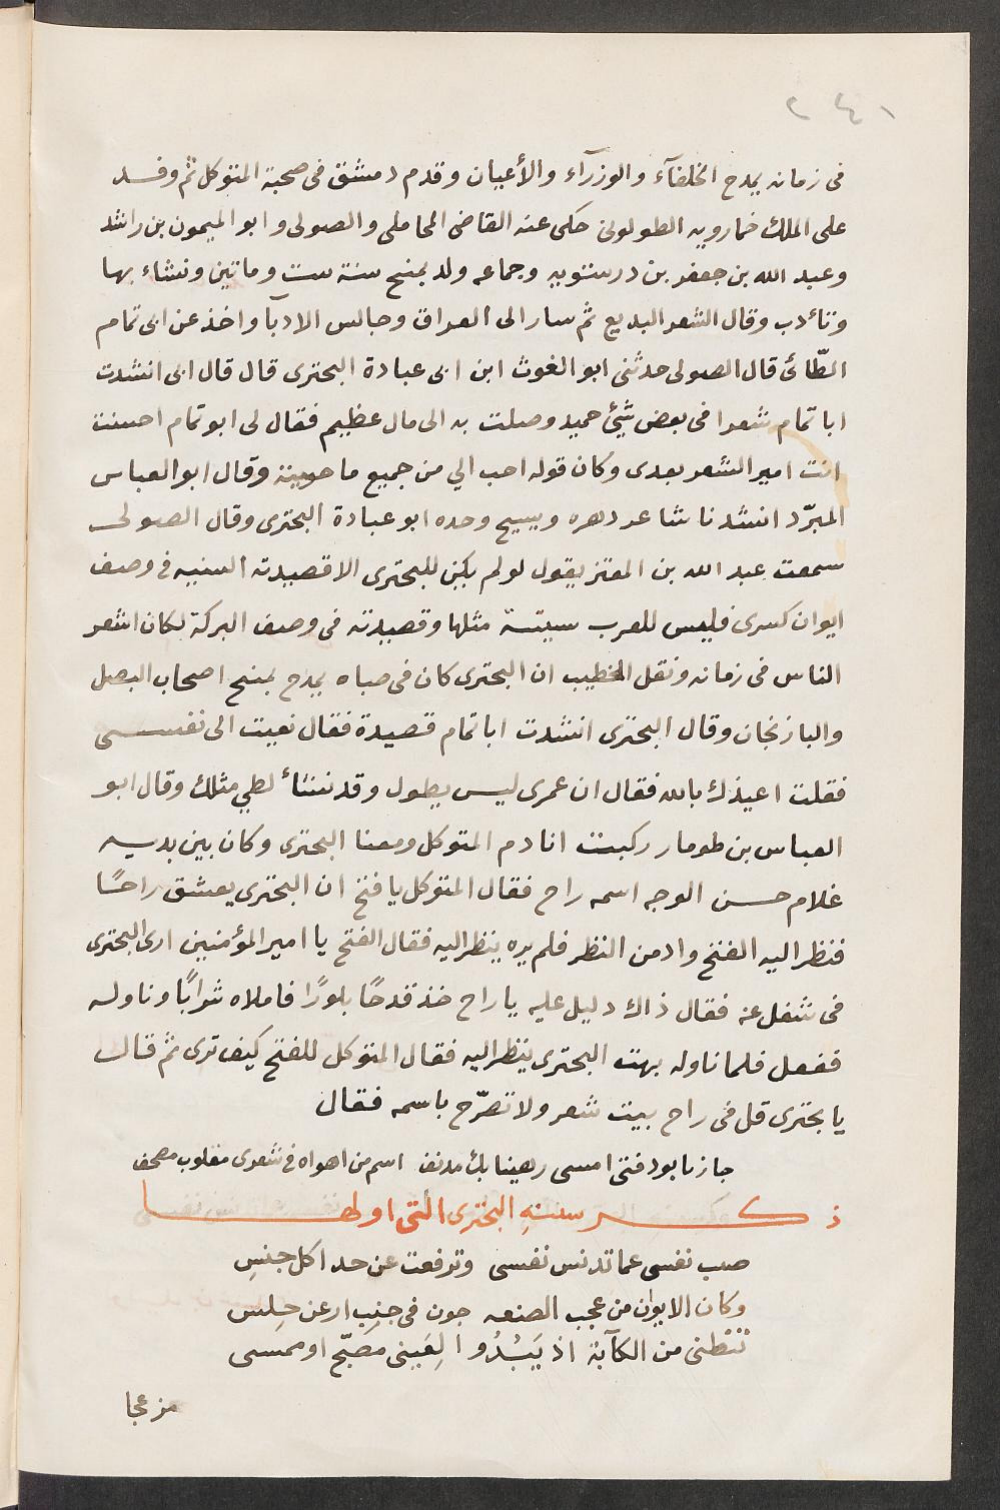 ٢٤١
فى زمانه يمدح الخلفآء والوزرآء والأعيان وقدم دمشق فى صحبة المتوكل ثم وفد
على الملك خمارويه الطولونى حكى عنه القاضى المحاملى والصولى وابو الميمون بن راشد
وعبد الله بن جعفر بن درستويه وجماعه ولد بمنبح سنة ست وماتين ونشاء بها
وتأدب وقال الشعر البديع ثم سار الى العراق وجالس الادبآ واخذ عن ابى تمام
الطّائ قال الصولى حدثنى ابو الغوث ابن ابى عبادة البحترى قال قال ابى انشدت
ابا تمام شعرا فى بعض شئ حميد وصلت به الى مال عظيم فقال لى ابو تمام احسنت
انت امير الشعر بعدى وكان قوله احب الي من جميع ما حويته وقال ابو العباس
المبرّد انشدنا شاعر دهره ويسيح وحده ابو عبادة البحترى وقال الصولى
سمعت عبد الله بن المعتز يقول لو لم يكن للبحترى الا قصيدته السنيه فى وصف
ايوان كسرى فليس للعرب سيتة مثلها وقصيدته فى وصف البركة لكان اشعر
الناس فى زمانه ونقل الخطيب ان البحترى كان فى صباه يمدح بمنبح اصحاب البصل
والبازنجان وقال البحترى انشدت ابا تمام قصيدة فقال نعيت الى نفسى
فقلت اعيذك بالله فقال ان عمرى ليس يطول وقد نشأ لطي مثلك وقال ابو
العباس بن طومار ركبت انادم المتوكل ومعنا البحترى وكان بين يديه
غلام حسن الوجه اسمه راح فقال المتوكل يا فتح ان البحترى يعشق راحًا
فنظر اليه الفتح وادمن النظر فلم يره ينظر اليه فقال الفتح يا امير المؤمنين ارى البحترى
فى شغل عنه فقال ذاك دليل عليه يا راح خذ قدحًا بلورًا فاملاه شرابًا وناوله
ففعل فلما ناوله بهت البحترى ينظر اليه فقال المتوكل للفتح كيف ترى ثم قال
يا بحترى قل فى راح بيت شعر ولا تصرّح باسمه فقال
جاز بابود فتى امسى رهينا بك مدنف اسم من اهواه فى شعرى مقلوب مصحف
ذكر سنيه البحترى التى اولها
صب نفسى عما تدنس نفسى وترفعت عن حدا كل جنسِ
وكان الايوان من عجب الصنعه جون فى جنبِ ارعن حِلس
تتظنى من الكآبة اذ يَبْدُوا لِعَينى مصبّح او ممسى
مزعجا